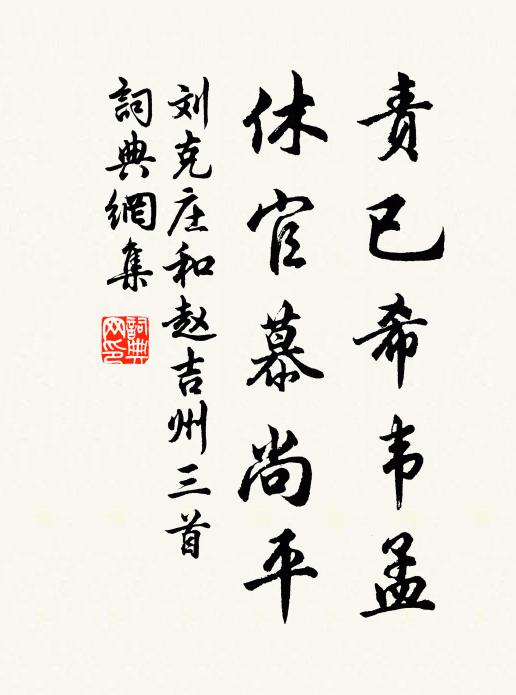 責已希韦孟
休官慕尚平
刘克庄和赵吉州三首
詞典網集
詞典网印